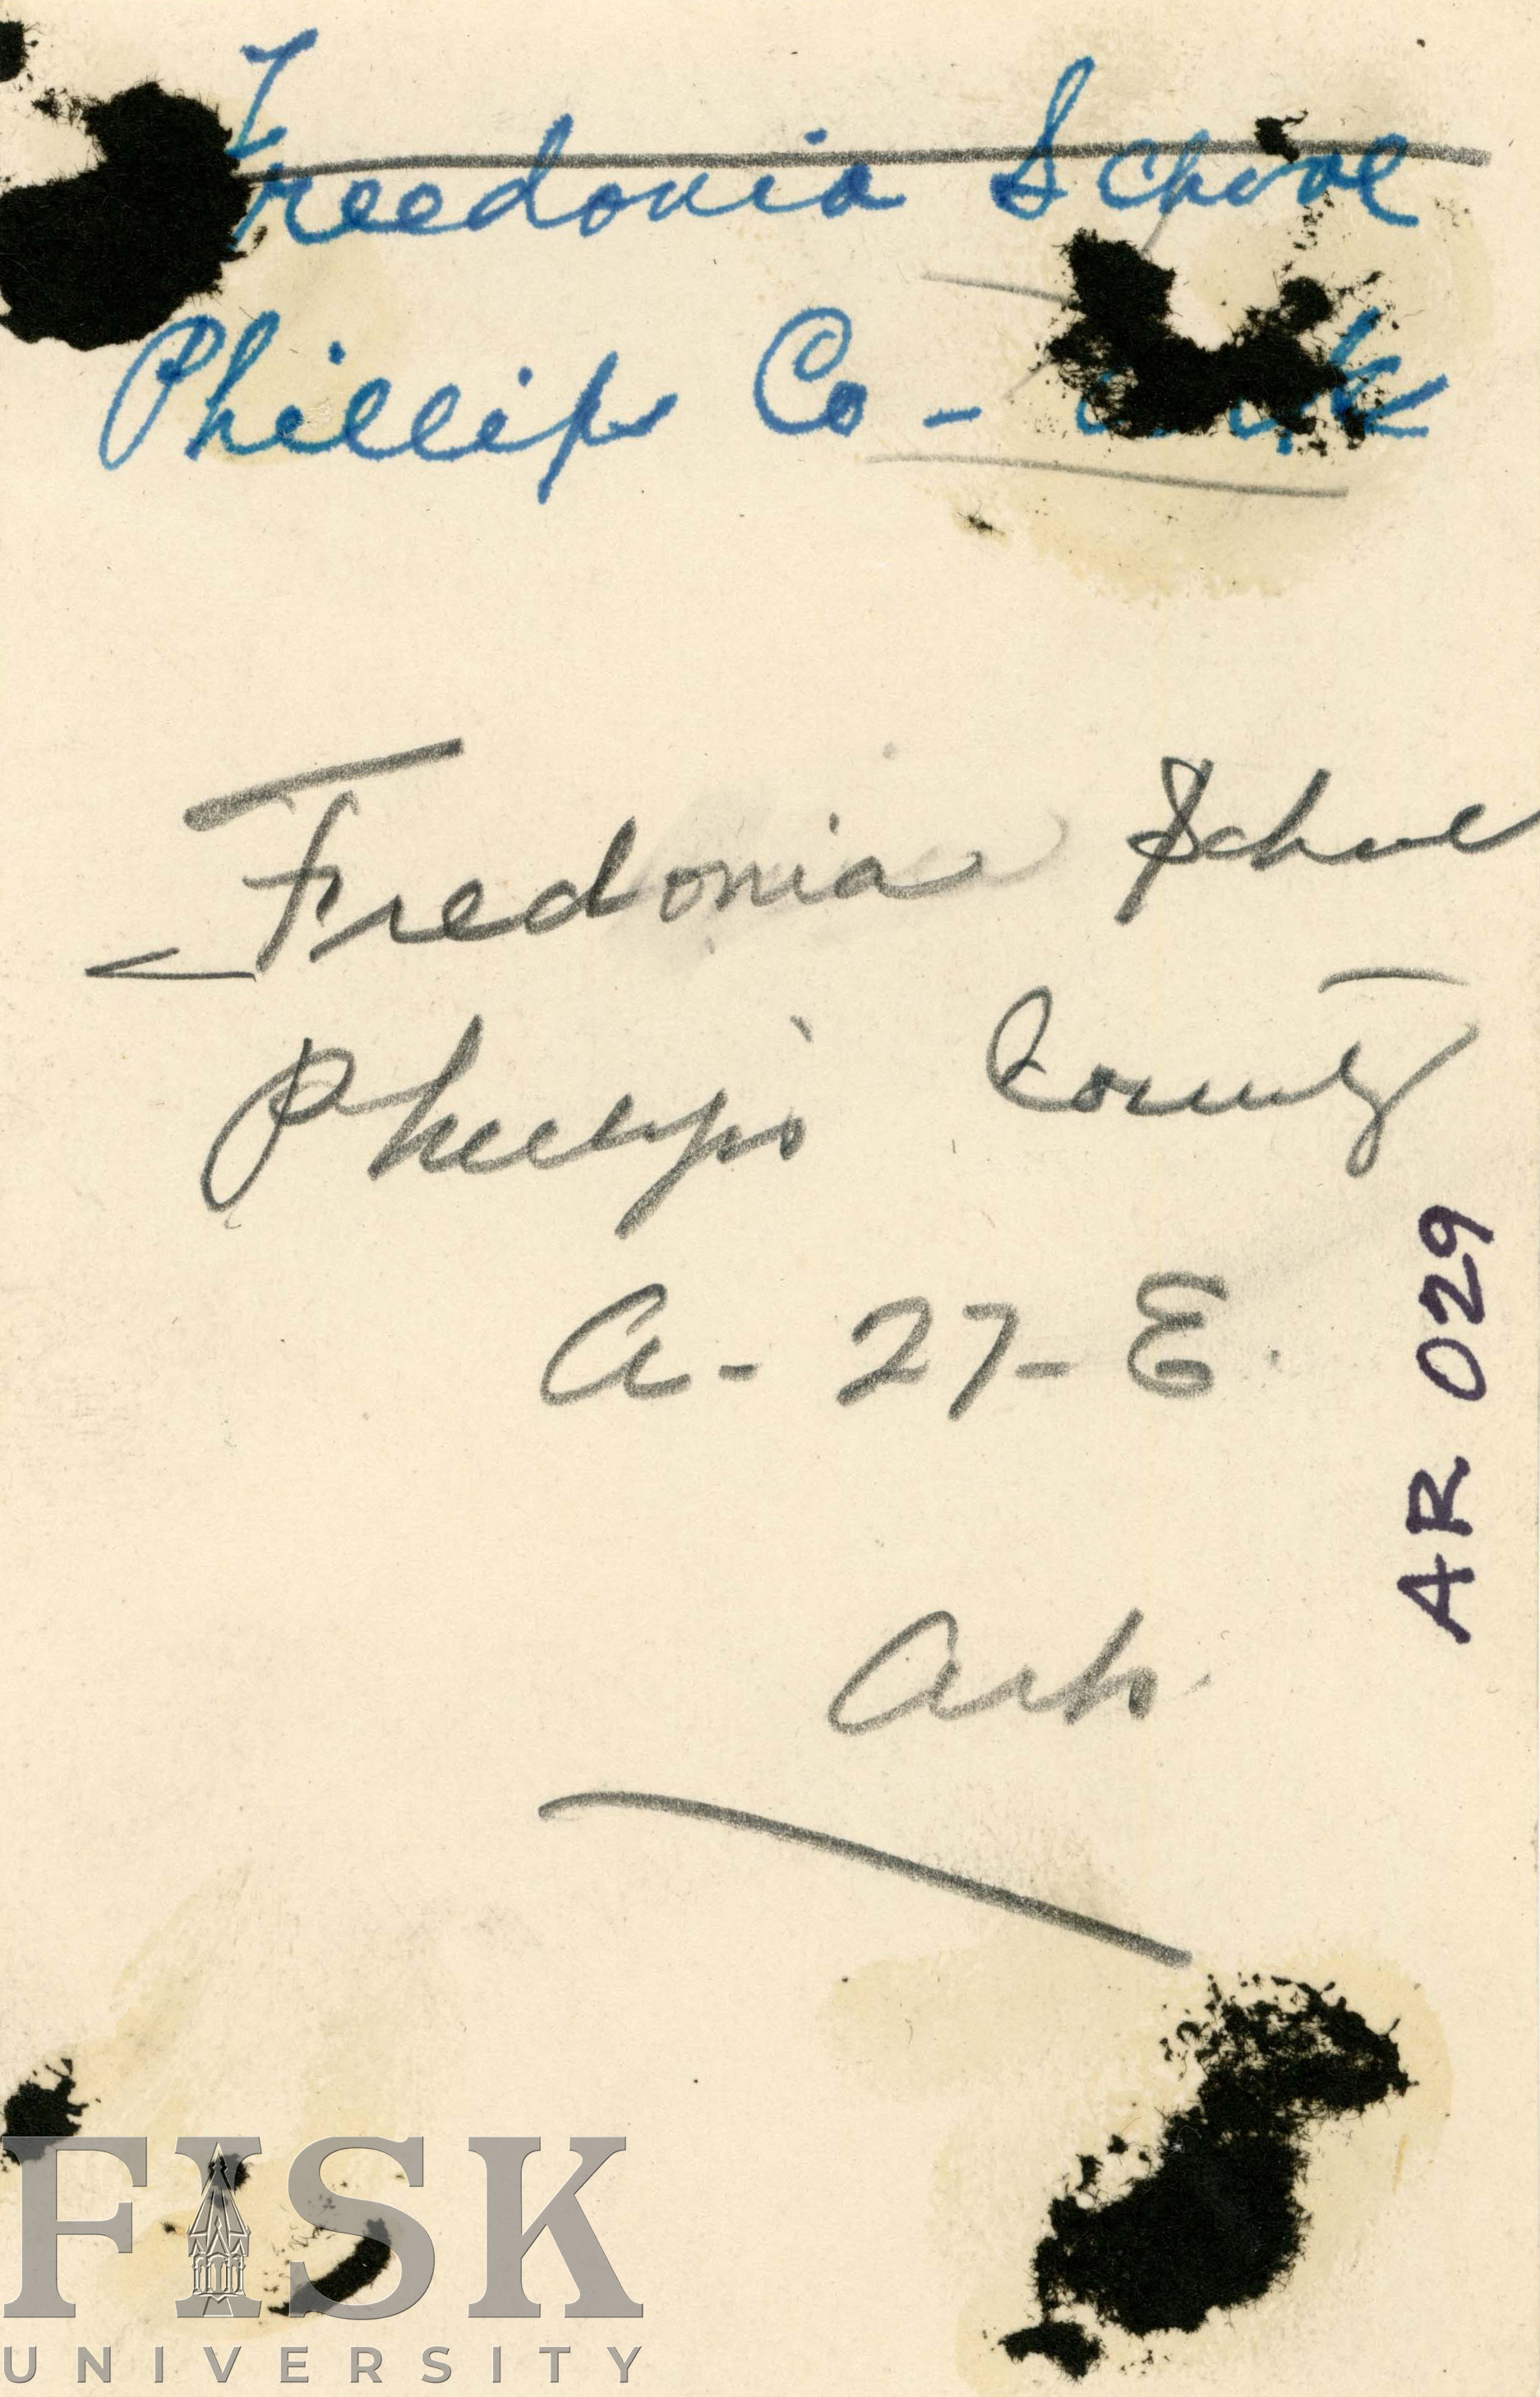 Freedonia School
Phillips Co - Ark
Fredonia School
Phillips County
A - 27 - E.
Ark.
AR 029
FISK
UNIVERSITY